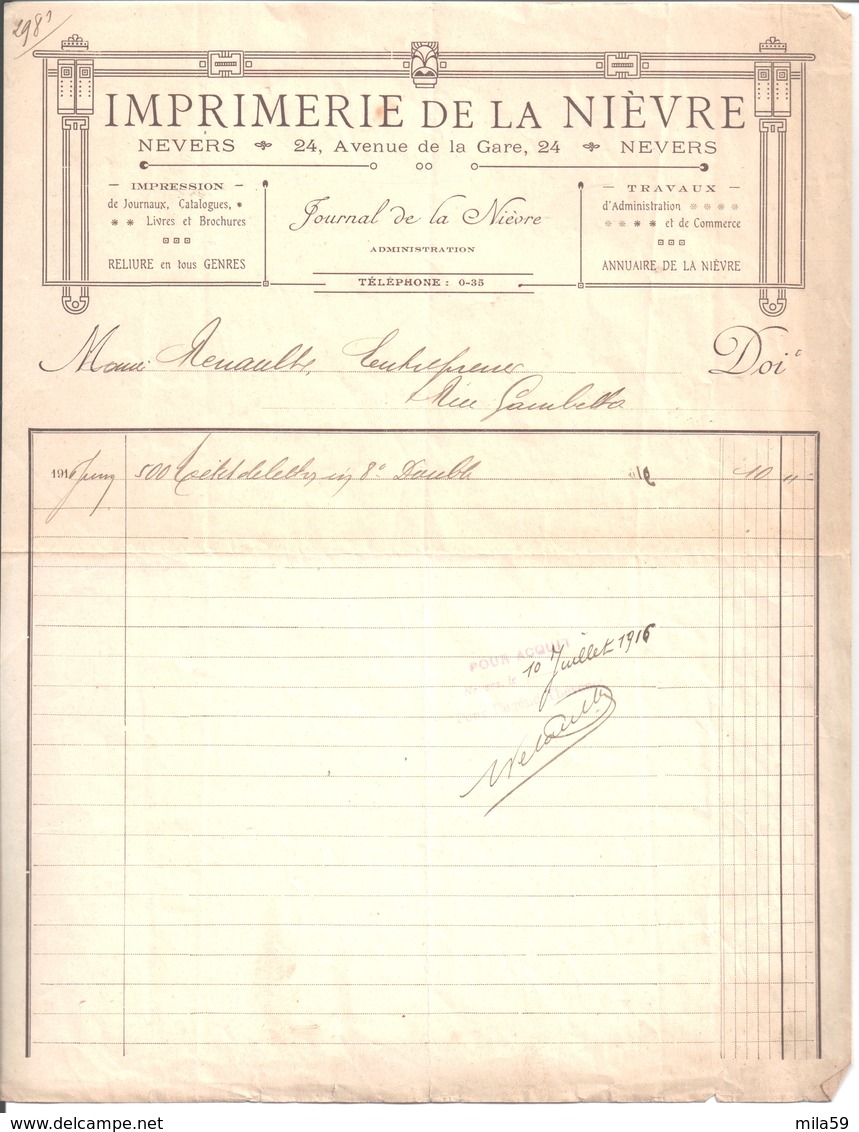 2981
IMPRIMERIE DE LA NIÈVRE
NEVERS 24, Avenue de la Gare, 24 NEVERS
— IMPRESSION —
de Journaux, Catalogues,
Livres et Brochures
RELIURE en tous GENRES
Journal de la Nièvre
ADMINISTRATION
TÉLÉPHONE : 0-35
— TRAVAUX —
d'Administration
et de Commerce
ANNUAIRE DE LA NIÈVRE
Renault, Entrepreneur Doit
Rue Gambetta
1916 Juin 500 in 8º Double 10 "
POUR ACQUIT
10 Juillet 1916
Nevers, le
mila59